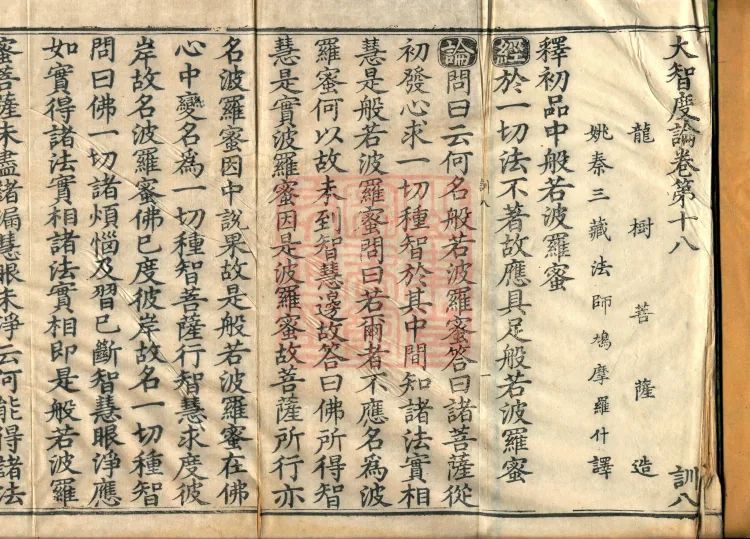 大智度論卷第十八 訓八
龍樹菩薩造
姚秦三藏法師鳩摩羅什譯
釋初品中般若波羅蜜
經於一切法不著故應具足般若波羅蜜
訓八
論問曰云何名般若波羅蜜答曰諸菩薩從
初發心求一切種智於其中間知諸法實相
慧是般若波羅蜜問曰若爾者不應名爲波
羅蜜何以故未到智慧邊故答曰佛所得智
慧是實波羅蜜因是波羅蜜故菩薩所行亦
名波羅蜜因中說果故是般若波羅蜜在佛
心中變名為一切種智菩薩行智慧求度彼
岸故名波羅蜜佛已度彼岸故名一切種智
問曰佛一切諸煩惱及習已斷智慧眼淨應
如實得諸法實相諸法實相即是般若波羅
蜜菩薩未盡諸漏慧眼未淨云何能得諸法